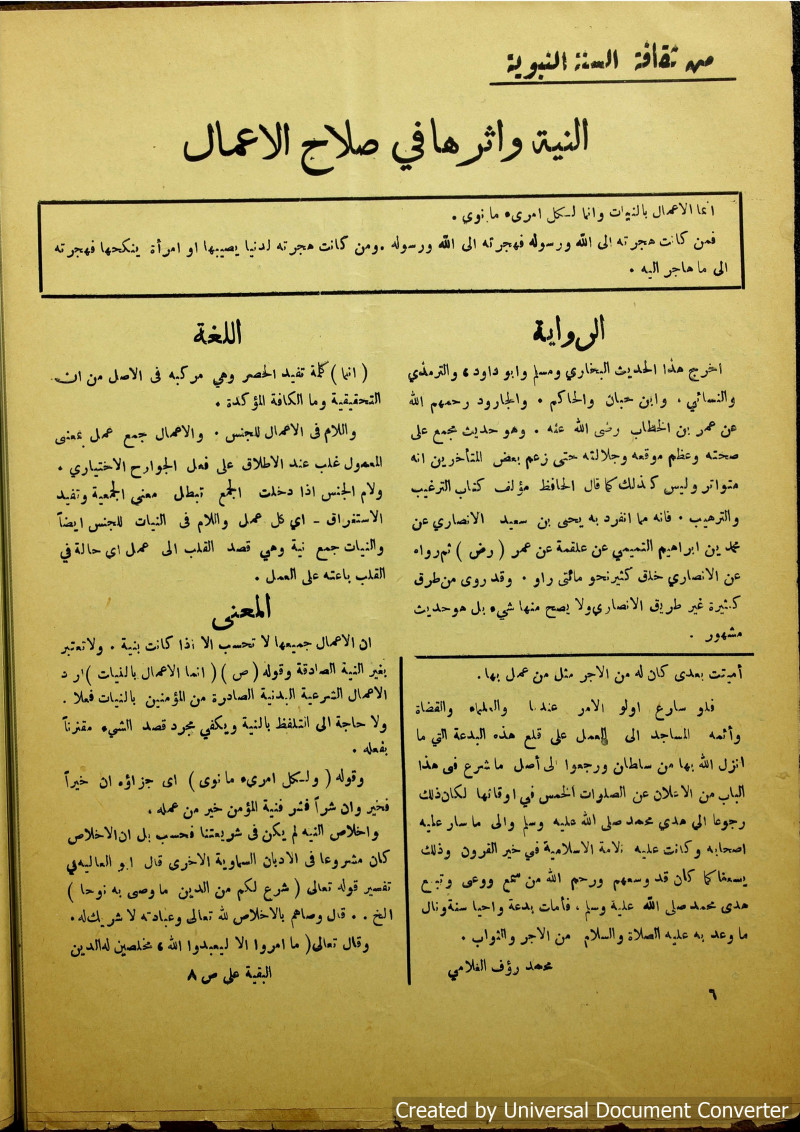 من ثقافة السنة النبوية
النية واثرها في صلاح الاعمال
انما الاعمال بالنيات وانما لكل امرىء ما نوى .
فمن كانت هجرته الى الله ورسوله فهجرته الى الله ورسوله .ومن كانت هجرته لدنيا يصيبها او امرأة ينكحها فهجرته
الى ما هاجر اليه .
الرواية
اخرج هذا الحديث البخاري ومسلم وابو داود ، والترمذي
والنسائي . وابن حبان والحاكم . والجارود رحمهم الله
عن عمر بن الخطاب رضى الله عنه . وهو حديث مجمع على
صحته وعظم موقعه وجلالته حتى زعم بعض المتأخرين انه
متواتر وليس كذلك كما قال الحافظ مؤلف كتاب الترغيب
والترهيب . فانه مما انفرد به يحيى بن سعيد الانصاري عن
محمد بن ابراهيم التميمي عن علقمة عن عمر ( رض ) ثم رواه
عن الانصاري خلق كثير نحو مائتى راو . وقد روى من طرق
كثيرة غير طريق الانصاري ولا يصح منها شيء بل هو حديث
مشهور .
أميتت بعدى كان له من الاجر مثل من عمل بها .
فلو سارع اولو الامر عندنا والعلماء والقضاة
وأئمه المساجد الى العمل على قلع هذه البدعة التي ما
انزل الله بها من سلطان ورجعوا الى أصل ما شرع فى هذا
الباب من الاعلان عن الصلوات الخمس في اوقاتها لكان ذلك
رجوعا الى هدي محمد صلى الله عليه وسلم والى ما سار عليه
اصحابه وكانت عليه الامة الاسلامية في خير القرون وذلك
يسعنا كما كان قد وسعهم ورحم الله من سمع ووعى وتبع
هدى محمد صلى الله علية وسلم ، فأمات بدعة واحيا سنة ونال
ما وعد به عليه الصلاة والسلام من الاجر والثواب .
محمد رؤف الغلامي
اللغة
( انما ) كلمة تفيد الحصر وهي مركبه فى الاصل من ان
التحقيقية وما الكافة المؤكدة .
واللام فى الاعمال للجنس . والاعمال جمع عمل بمعنى
المعمول غلب عند الاطلاق على فعل الجوارح الاختياري .
ولام الجنس اذا دخلت الجمع تبطل معنى الجمعية وتفيد
الاستغراق - اي كل عمل واللام فى النيات للجنس ايضاً
والنيات جمع نية وهي قصد القلب الى عمل اي حالة في
القلب باعثه على العمل .
المعنى
ان الاعمال جميعها لا تحسب الا اذا كانت بنية . ولا تعتبر
بغير النية الصادقة وقوله ( ص ) ( انما الاعمال بالنيات )
الاعمال الشرعية البدنية الصادرة من المؤمنين بالنيات فعلا .
ولا حاجة الى التلفظ بالنية ويكفي مجرد قصد الشيء مقترناً
بفعله .
وقوله ( ولكل امرىء ما نوى ) اى جزاؤه ان خيراً
فخير وان شراً فشر فنية المؤمن خير من عمله .
واخلاص النيه لم يكن فى شريعتنا فحسب بل ان الاخلاص
كان مشروعا فى الاديان السماوية الاخرى قال ابو العاليه في
تفسير قوله تعالى ( شرع لكم من الدين ما وصى به نوحا )
الخ . . قال وصاهم بالاخلاص لله تعالى وعبادته لا شريك له .
وقال تعالى ( ما امروا الا ليعبدوا الله ، مخلصين له الدين
البقية على ص ٨
٦
Created by Universal Document Converter